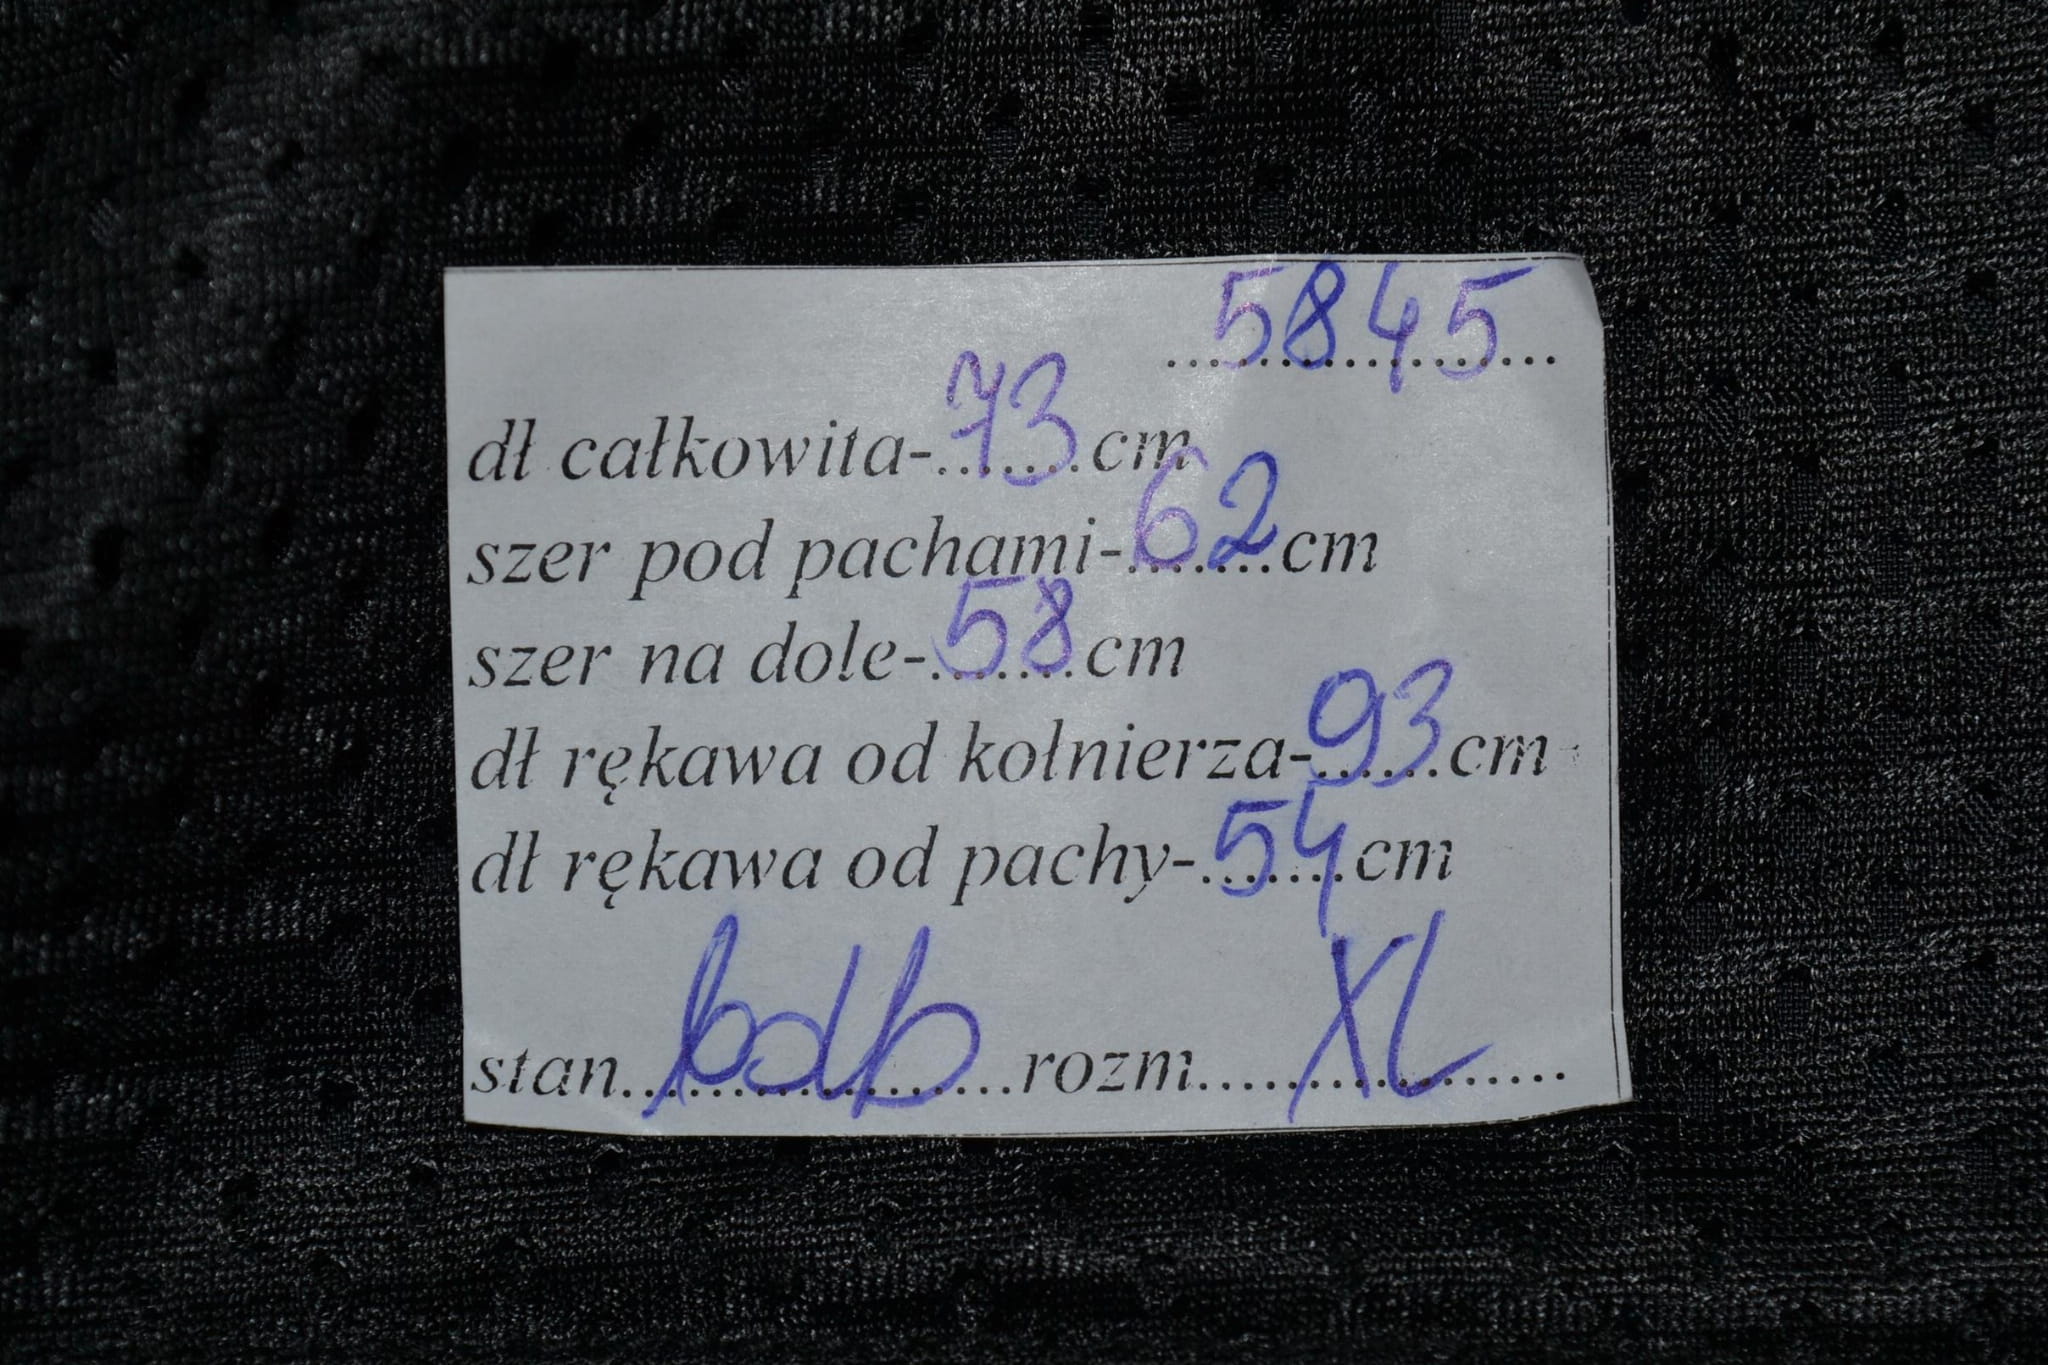 5845
dł całkowita-73cm
szer pod pachami-62cm
szer na dole-58cm
dł rękawa od kołnierza-93cm
dł rękawa od pachy-54cm
stan bdb rozm XL